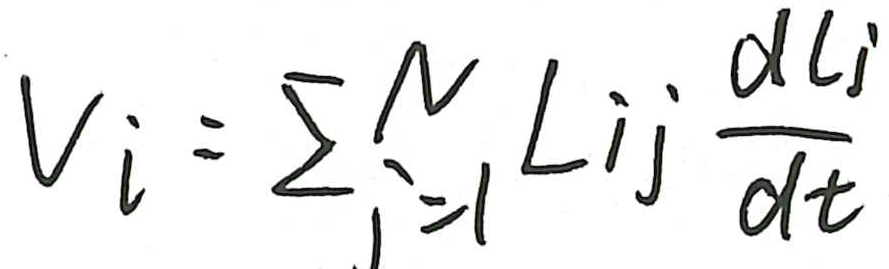 V_i = \sum_{j=1}^{N} L_{ij} \frac{dL_j}{dt}